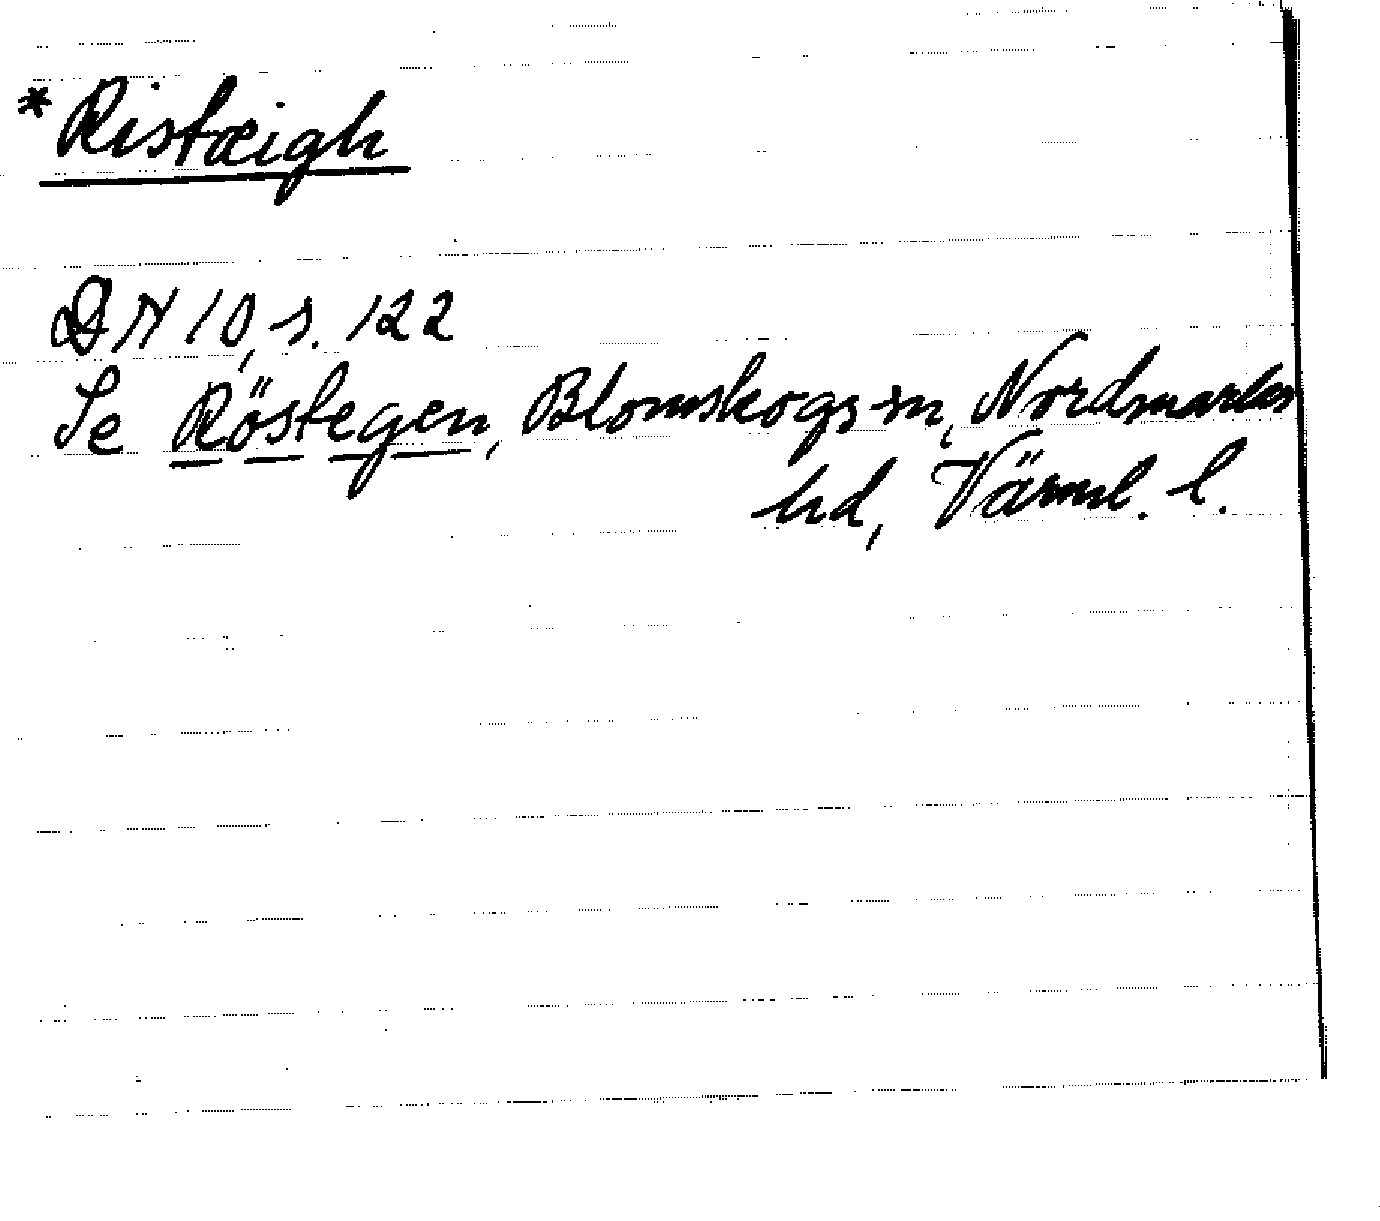 * Ristæigh
DN 10, s. 122
Se Röstegen, Blomskogs sn, Nordmarks
hd, Värml. l.